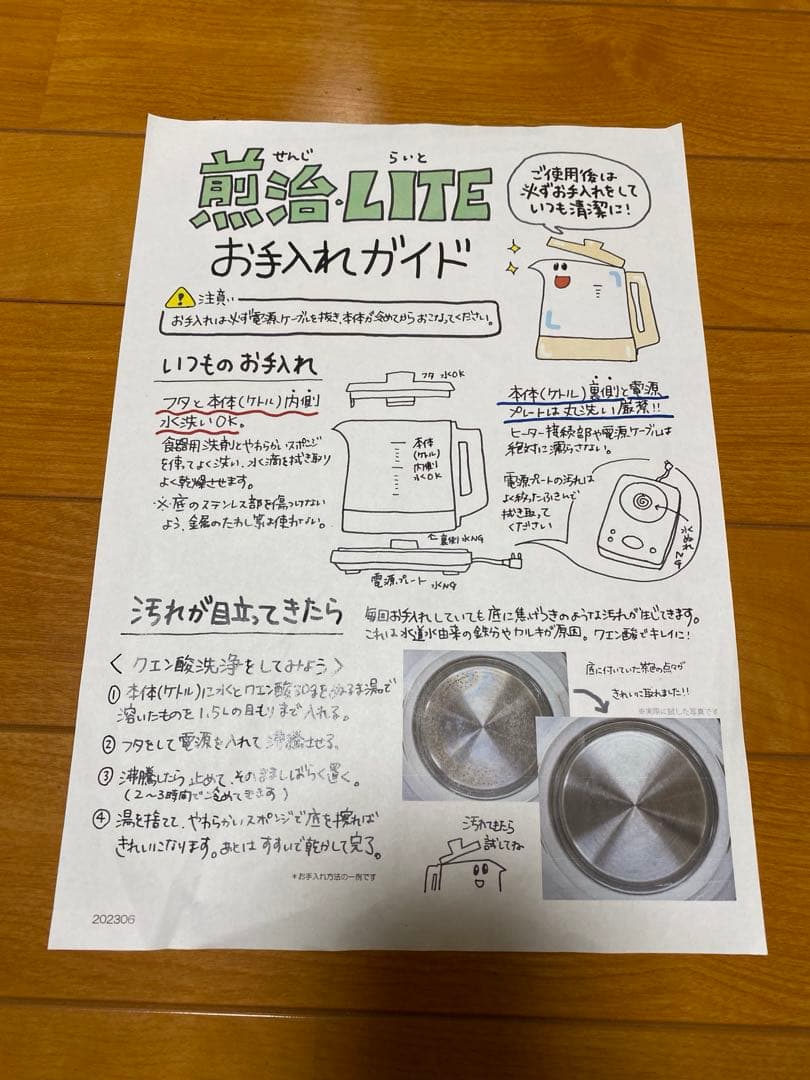 せんじ らいと
煎治・LITE
お手入れガイド
ご使用後は
必ずお手入れをして
いつも清潔に!
注意!!
お手入れは必ず電源ケーブルを抜き、本体が冷めてからおこなってください。
いつものお手入れ
フタと本体(ケトル)内側
水洗いOK。
食器用洗剤とやわらかいスポンジ
を使ってよく洗い、水滴を拭き取り
よく乾燥させます。
※底のステンレス部を傷つけない
よう、金属のたわし等は使わない。
フタ 水OK
本体
(ケトル)
内側
水OK
裏側 水NG
電源プレート 水NG
本体(ケトル)裏側と電源
プレートは丸洗い厳禁!!
ヒーター接続部や電源ケーブルは
絶対に濡らさない。
電源プレートの汚れは
よく絞ったふきんで
拭き取って
ください
水ぬれ
汚れが目立ってきたら
毎回お手入れしていても底に焦げつきのような汚れが生じてきます。
これは水道水由来の鉄分やカルキが原因。クエン酸でキレイに!
〈クエン酸洗浄をしてみよう〉
① 本体(ケトル)に水とクエン酸30gをぬるま湯で
溶いたものを1.5Lの目もりまで入れる。
② フタをして電源を入れて沸騰させる。
③ 沸騰したら止めて、そのまましばらく置く。
(2〜3時間で冷めてきます)
④ 湯を捨てて、やわらかいスポンジで底を擦れば
きれいになります。あとはすすいで乾かして完了。
*お手入れ方法の一例です
底に付いていた茶色の点々が
きれいに取れました!!
※実際に試した写真です
汚れてきたら
試してね
202306